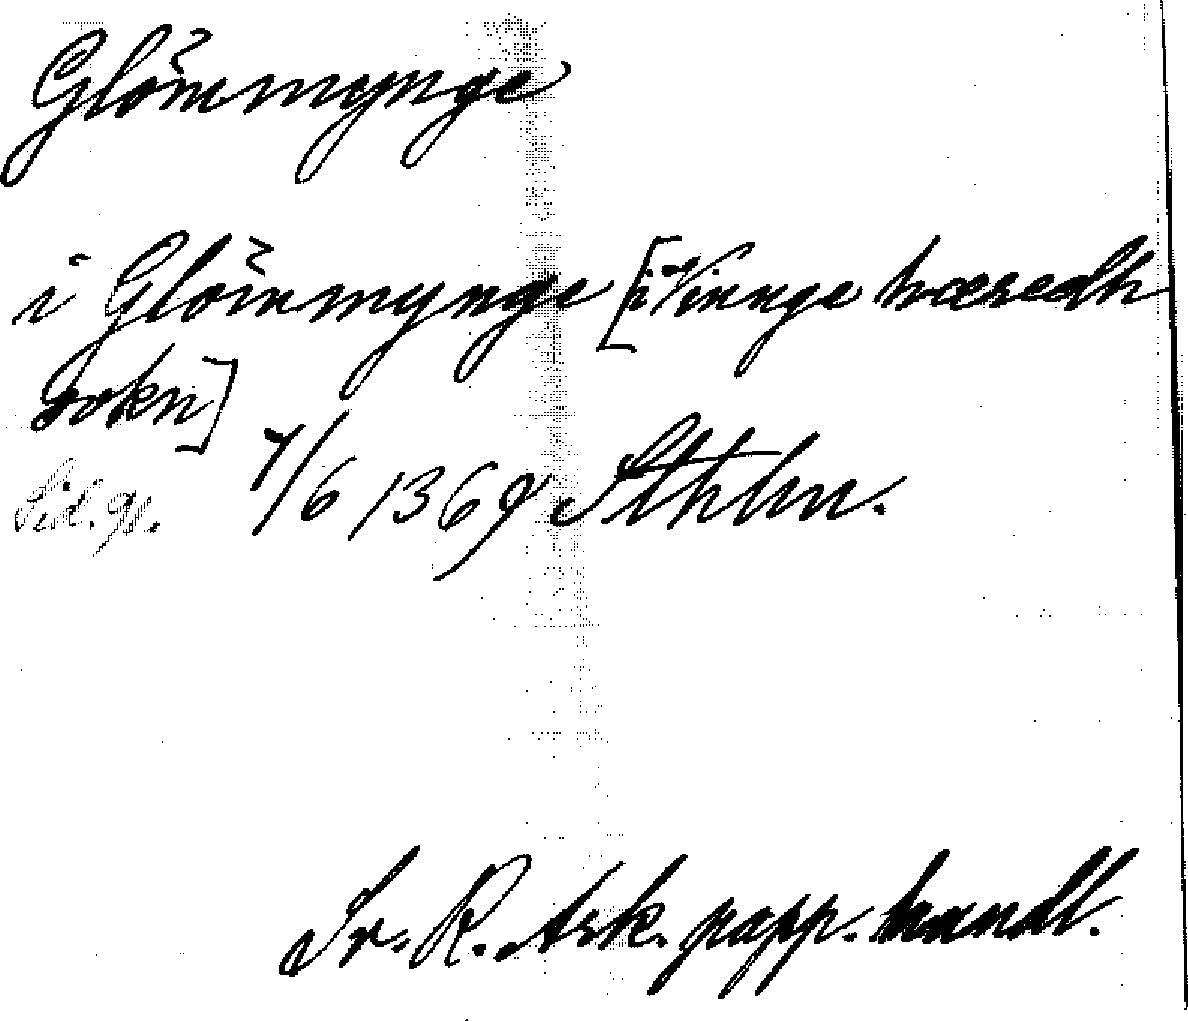 Glömmynge
i Glömmynge [i Vinnge hæredh
sokn]
Sid. gr. 7/6 1369 Sthlm.
Sv. R. Ark. papp. handl.